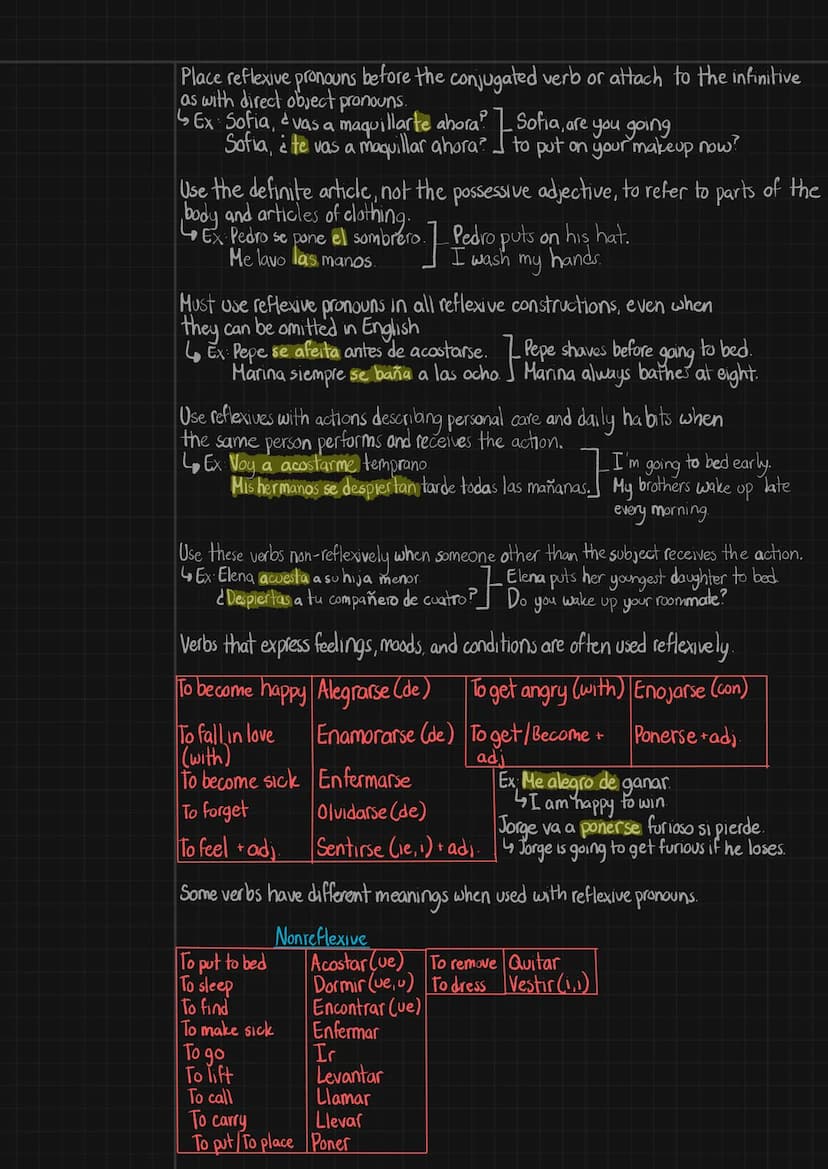 Place reflexive pronouns before the conjugated verb or attach to the infinitive
as with direct object pronouns.
↳ Ex: Sofia, ¿vas a maquillarte ahora? Sofia, are you going
Sofia, ¿te vas a maquillar ahora? to put on your makeup now?
Use the definite article, not the possessive adjective, to refer to parts of the
body and articles of clothing.
↳ Ex: Pedro se pone el sombrero. Pedro puts on his hat.
Me lavo las manos. I wash my hands.
Must use reflexive pronouns in all reflexive constructions, even when
they can be omitted in English
↳ Ex: Pepe se afeita antes de acostarse. Pepe shaves before going to bed.
Marina siempre se baña a las ocho. Marina always bathes at eight.
Use reflexives with actions describing personal care and daily habits when
the same person performs and receives the action.
↳ Ex: Voy a acostarme temprano I'm going to bed early.
Mis hermanos se despiertan tarde todas las mañanas. My brothers wake up late
every morning.
Use these verbs non-reflexively when someone other than the subject receives the action.
↳ Ex: Elena acuesta a su hija menor Elena puts her youngest daughter to bed
¿Despiertas a tu compañero de cuatro? Do you wake up your roommate?
Verbs that express feelings, moods, and conditions are often used reflexively.
To become happy Alegrarse (de) To get angry (with) Enojarse (con)
To fall in love Enamorarse (de) To get/Become + Ponerse + adj.
(with) adj
To become sick Enfermarse Ex: Me alegro de ganar.
↳ I am happy to win.
To forget Olvidarse (de) Jorge va a ponerse furioso si pierde.
To feel + adj. Sentirse (ie, i) + adj. ↳ Jorge is going to get furious if he loses.
Some verbs have different meanings when used with reflexive pronouns.
Nonreflexive
To put to bed Acostar (ue) To remove Quitar
To sleep Dormir (ue, u) To dress Vestir (i, i)
To find Encontrar (ue)
To make sick Enfermar
To go Ir
To lift Levantar
To call Llamar
To carry Llevar
To put/To place Poner